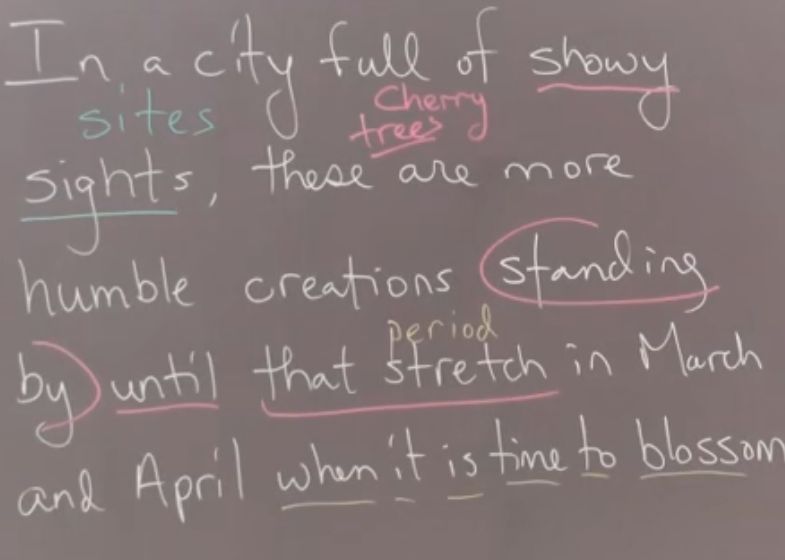 In a city full of showy
sites
Cherry
trees
sights, these are more
humble creations standing
period
by until that stretch in March
and April when it is time to blossom